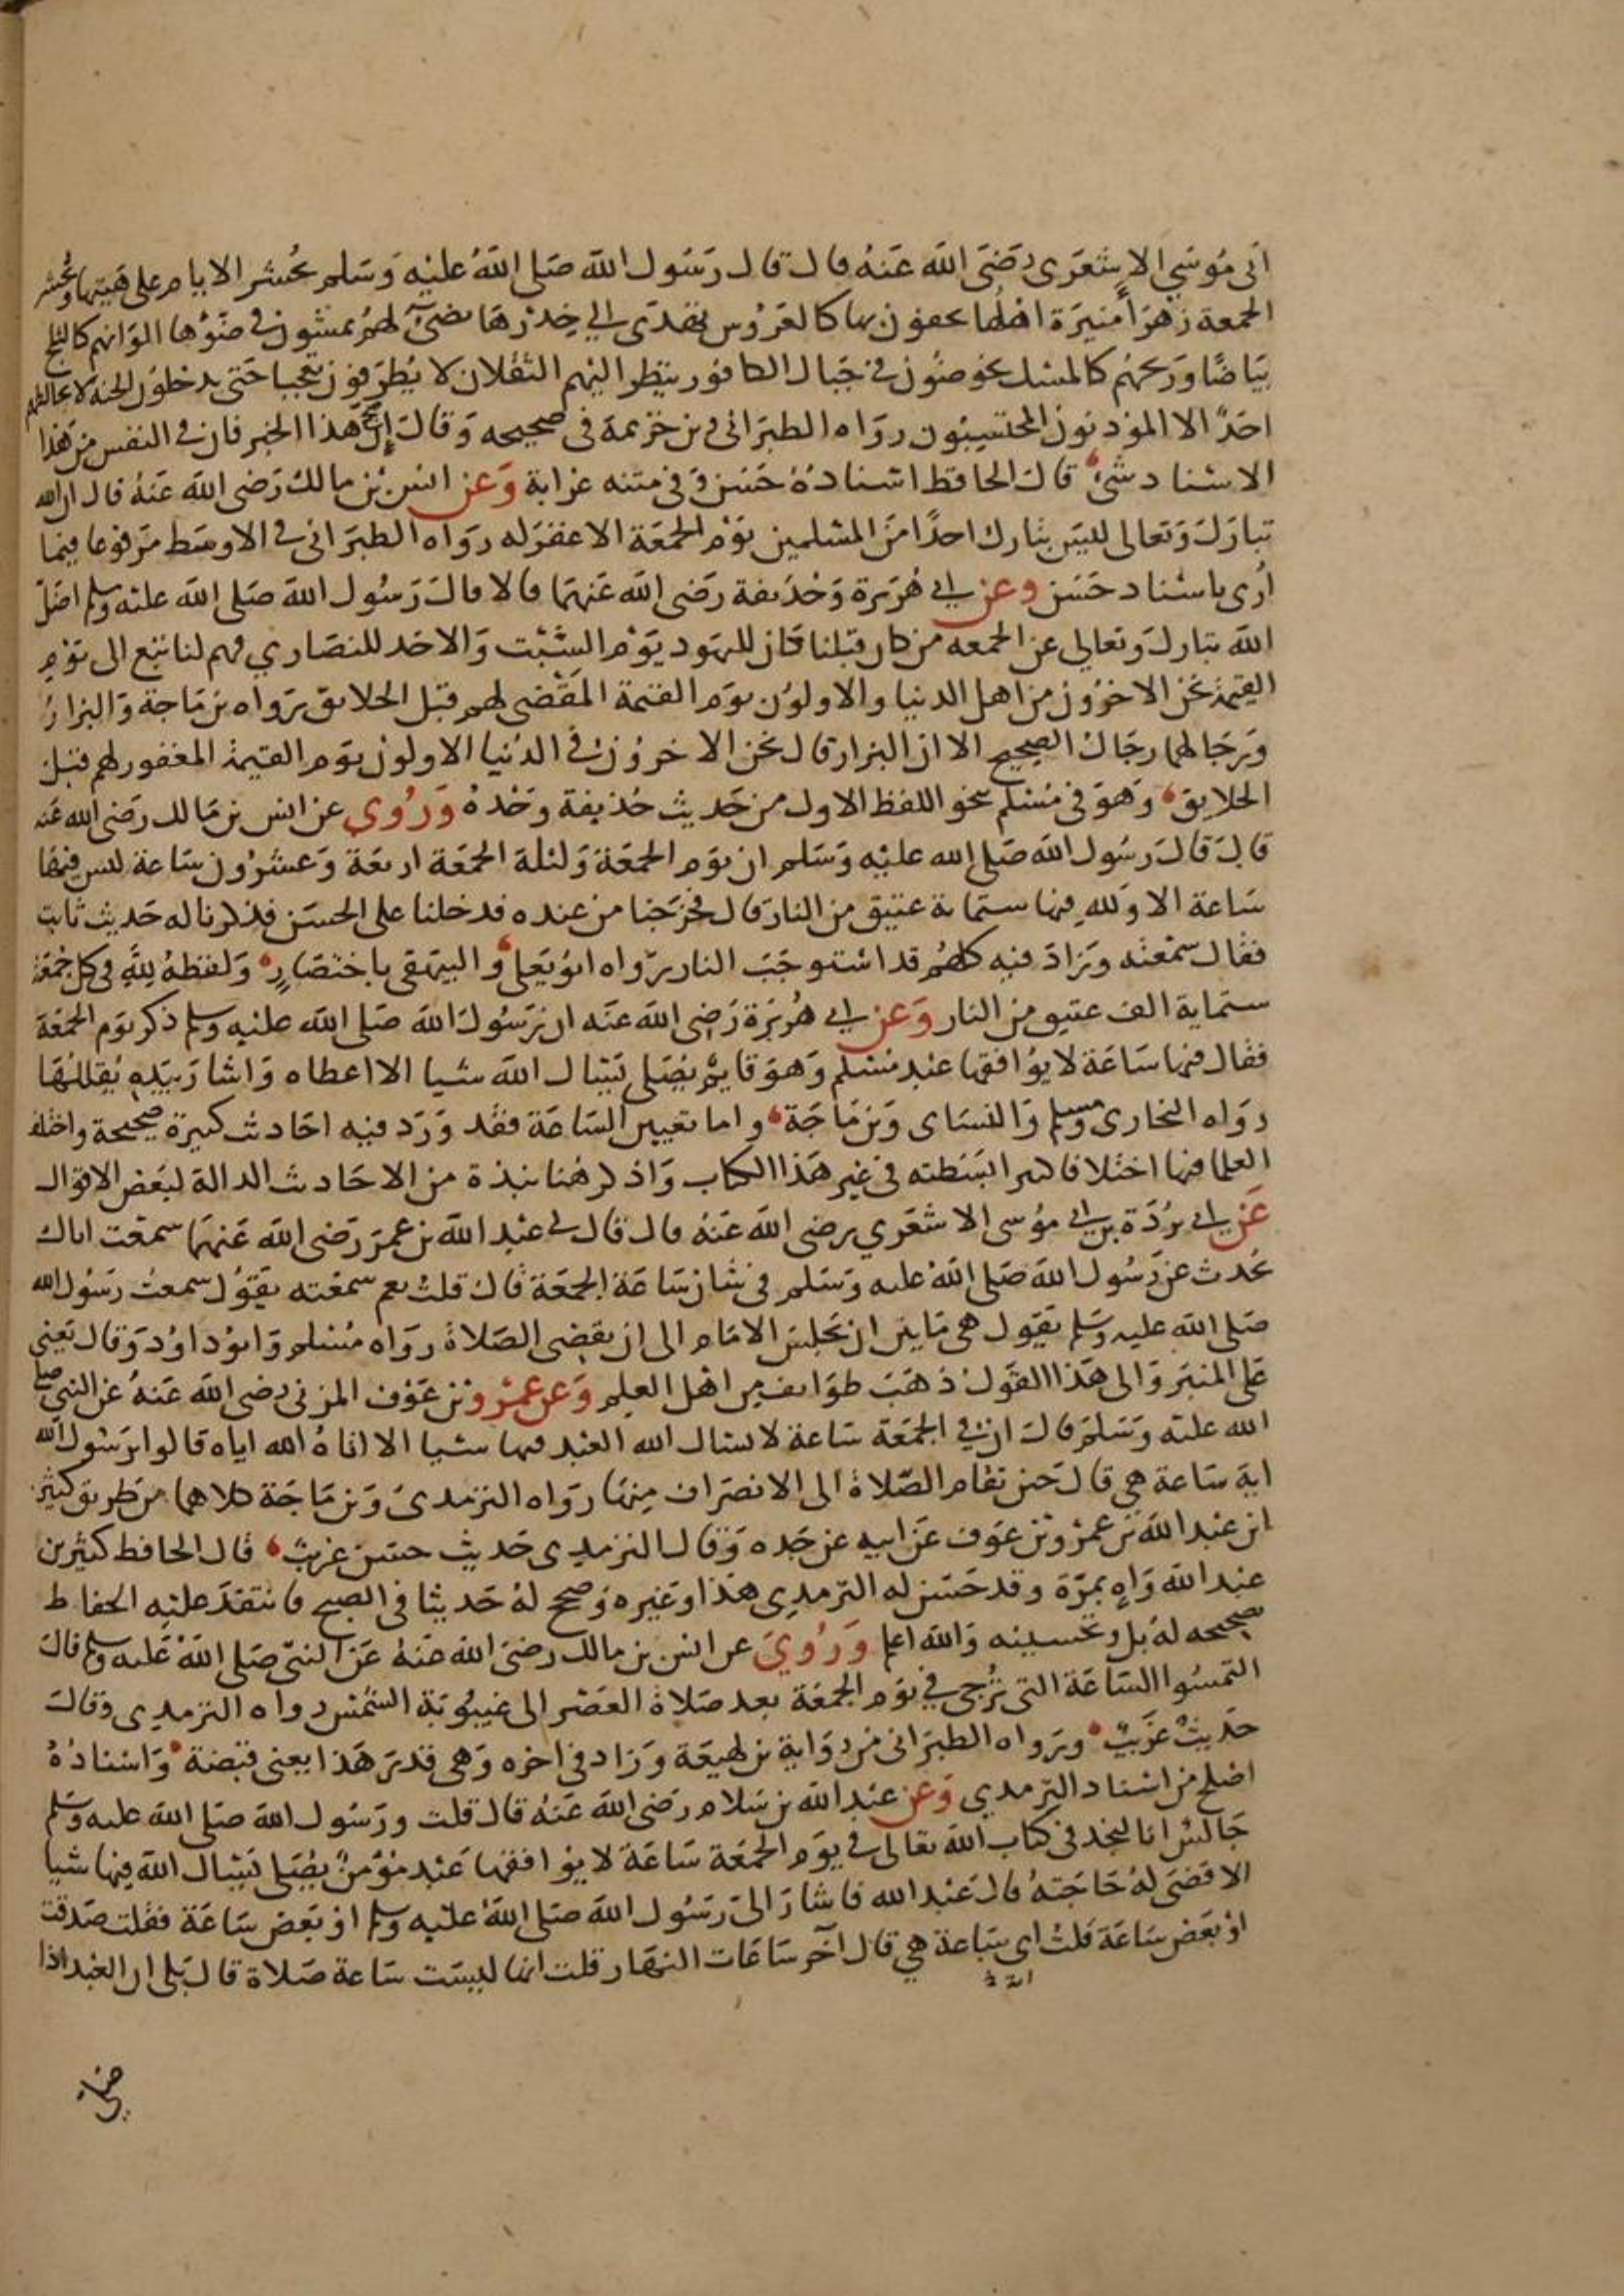 ابي مُوسَى الاشعَرى رَضَىَ اللَّه عَنهُ قال قال رَسُول اللَّه صَلى اللَّهُ عليْه وَسَلم تحُشر الايام على هَيتها وتحُشر
الجمعة زهرَا مُنيرَة اهلها يحفون بها كالعَرُوس تهدَى الي خِدْرهَا تضىُ لهُم يمشون في ضَوْها الوَانهم كالثلج
بَيَاضًا ورَيحهُم كالمسْك يخوضُون في جَبال الكافور ينظر اليْهم الثَّقلان لا يُطرَقون تعجبا حَتى يدخلوُن الجنة لا يخالطهم
احَدٌ الا الموذنونَ المحتسِبُون روَاه الطبَرَانى وبن خزيمة فى صحيحه وَقالَ إِن صَحّ هذا الخبر فان في النفس مِن هَذا
الاسْناد شىْ قالَ الحافظ اسْنادهُ حَسَن وَفى متنه غرابة وَعن انسْ بْن مالك رَضى اللَّه عَنهُ قال ان اللَّه
تبارَكَ وَتعالى ليْسَ بتارك احدًا مَنَ المسْلمين يَوْم الجمعَة الا غفرَ له روَاه الطبَرَانى في الاوسَط مَرفوعا فيما
ارُى باسْناد حَسَن وعن ابي هُرَيرة وَحُذيفة رَضى اللَّه عَنهمَا قالا قالَ رَسُول اللَّه صَلى اللَّه عليْه وسلم اضَلّ
اللَّه تبارك وَتعالي عن الجمعه من كان قبْلنا فكان لليَهود يَوْم السَّبْت وَالاحَد للنصَاري فهم لنا تبَع الى يَوْم
القيمة نحن الاخرُون من اهل الدنيا والاولوُن يَوم القيمة المَقضى لهم قبْل الخلايق رَواه بن مَاجة وَالبزارُ
وَرجَالهما رجَال الصحيح الا ان البزار قال نحن الاخروُن في الدنيا الاولون يوَم القيمة المغفور لهم قبْل
الخلايق وَهوَ فى مُسْلم نحو اللفظ الاول من حَديث حُذيفة وَحْدهُ وَرُوي عن انس بن مَالك رَضى اللَّه عَنه
قالَ قالَ رَسُول اللَّه صَلى اللَّه عليْه وَسَلم ان يوَم الجمْعَة وَليْلة الجمْعَة اربعَة وَعشرُون سَاعة ليس فيهَا
سَاعة الا وَللهِ فيها ستماية عتيق من النار قال فخرَجنا من عنده فدخلنا على الحسَن فذكرنا له حَديث ثابت
فقال سمعْته وَزادَ فيه كلهُم قد اسْتوجَبَ النار رَواه ابوُيَعلى وَالبيْهقى باختصَارٍ وَلفظهُ للهِ فى كل جمْعَة
ستماية الف عتيق من النار وَعن ابي هُرَيرَة رَضى اللَّه عَنه ان رَسُولَ اللَّه صَلى اللَّه عليْه وسلم ذكر يوَم الجمْعَة
فقال فيها سَاعَة لا يُوافقها عبْد مسْلم وَهوَ قايم يُصَلى يَسْال اللَّه شيا الا اعطاه وَاشارَ بيَدِهِ يُقللُهَا
روَاه البخارى ومسلم وَالنسَاى وَبن مَاجَة واما تعيين السَاعَة فقد وَرَدَ فيه احَاديث كثيرة صحيحة واختلف
العلما فيها اختلافا كثيرا بسَطته فى غير هَذا الكتاب وَاذكر هُنا نبذة من الاحَاديث الدالة لبَعض الاقوال
عَن ابي بُرْدَة بن ابي مُوسى الاشعَري رضى اللَّه عَنهُ قال قال لى عبْد اللَّه بن عمرَ رَضى اللَّه عَنهمَا سمعْت اباك
يحُدث عن رَسُول اللَّه صَلى اللَّهُ عليه وَسَلم فى شان سَاعَة الجمْعَة قال قلتُ نعم سمعْته يقوُل سمعتُ رَسُول اللَّه
صَلى اللَّه عليه وَسَلم يَقول هى مَا بين ان يَجْلِسَ الامَام الى ان تقضى الصَلاةُ روَاه مُسْلم وَابوُداوُد وَقال يَعني
عَلى المنبَر وَالى هَذا القوْل ذهَبَ طوَايف من اهْل العِلم وَعن عَمْرو بْن عَوْف المزنى رضى اللَّه عَنهُ عن النبى صلى
اللَّه عليْه وَسَلمَ قالَ ان في الجمْعَة سَاعة لا يسال اللَّه العبْد فيها شيا الا اتاهُ اللَّه اياه قالوا يرَسُول اللَّه
ايةَ سَاعة هى قالَ حَين تقام الصّلاة الى الانصَراف مِنهَا روَاه الترمذىَ وَبن مَاجَة كلاهما من طريق كثير
ابن عبْد اللَّه بن عَمرْو بْن عوَف عَن ابيه عن جَده وَقال الترمذى حَديث حسَن غريبٌ قال الحافط كثير بن
عبْد الله وَاهٍ بمرَة وقد حَسَن له الترمذى هذا وَغيره وَصحح لهُ حَديثا فى الصلح فانتقدَ عليْه الحفاظ
تصحيحه لهُ بل وتحسينه وَالله اعلم وَرُويَ عن انس بن مالك رضىَ اللَّه عَنهُ عَن النبيّ صَلى اللَّهُ عَليه وسلم قالَ
التمسُوا السَاعَة التى ترُجى في يوَم الجمْعَة بعد صَلاة العَصْر الى غيْبُوبَة الشمْس رواه الترمذى وَقالَ
حَديث غَريْبٌ وَرواه الطبَرَانى من روَاية بن لهيعَة وَزاد فى اخره وَهى قدرَ هَذا يعنى قبْضة وَاسْنادُهُ
اصْلح من اسْناد الترمذي وَعن عبْد اللَّه بن سَلام رَضى اللَّه عَنهُ قال قلت ورَسُول اللَّه صَلى اللَّه عليه وَسَلم
جَالسْ انا لنجد فى كتاب اللَّه تعالى فى يوَم الجمْعَة سَاعَة لا يوُافقهَا عَبْد مُوْمنٌ يُصَلى يَسْال اللَّه فِيها شيا
الا قضَى لهُ حَاجَتهُ قالَ عَبْد الله فاشارَ الىَ رَسُول اللَّه صَلى اللَّه عليْه وسلم اوْ بَعض سَاعَة فقلت صَدقت
اوْ بَعْض سَاعَة قلتُ اى سَاعة هي قال آخر سَاعَات النهَار قلت انها ليسَت سَاعة صَلاة قال بَلى ان العَبْد اذا